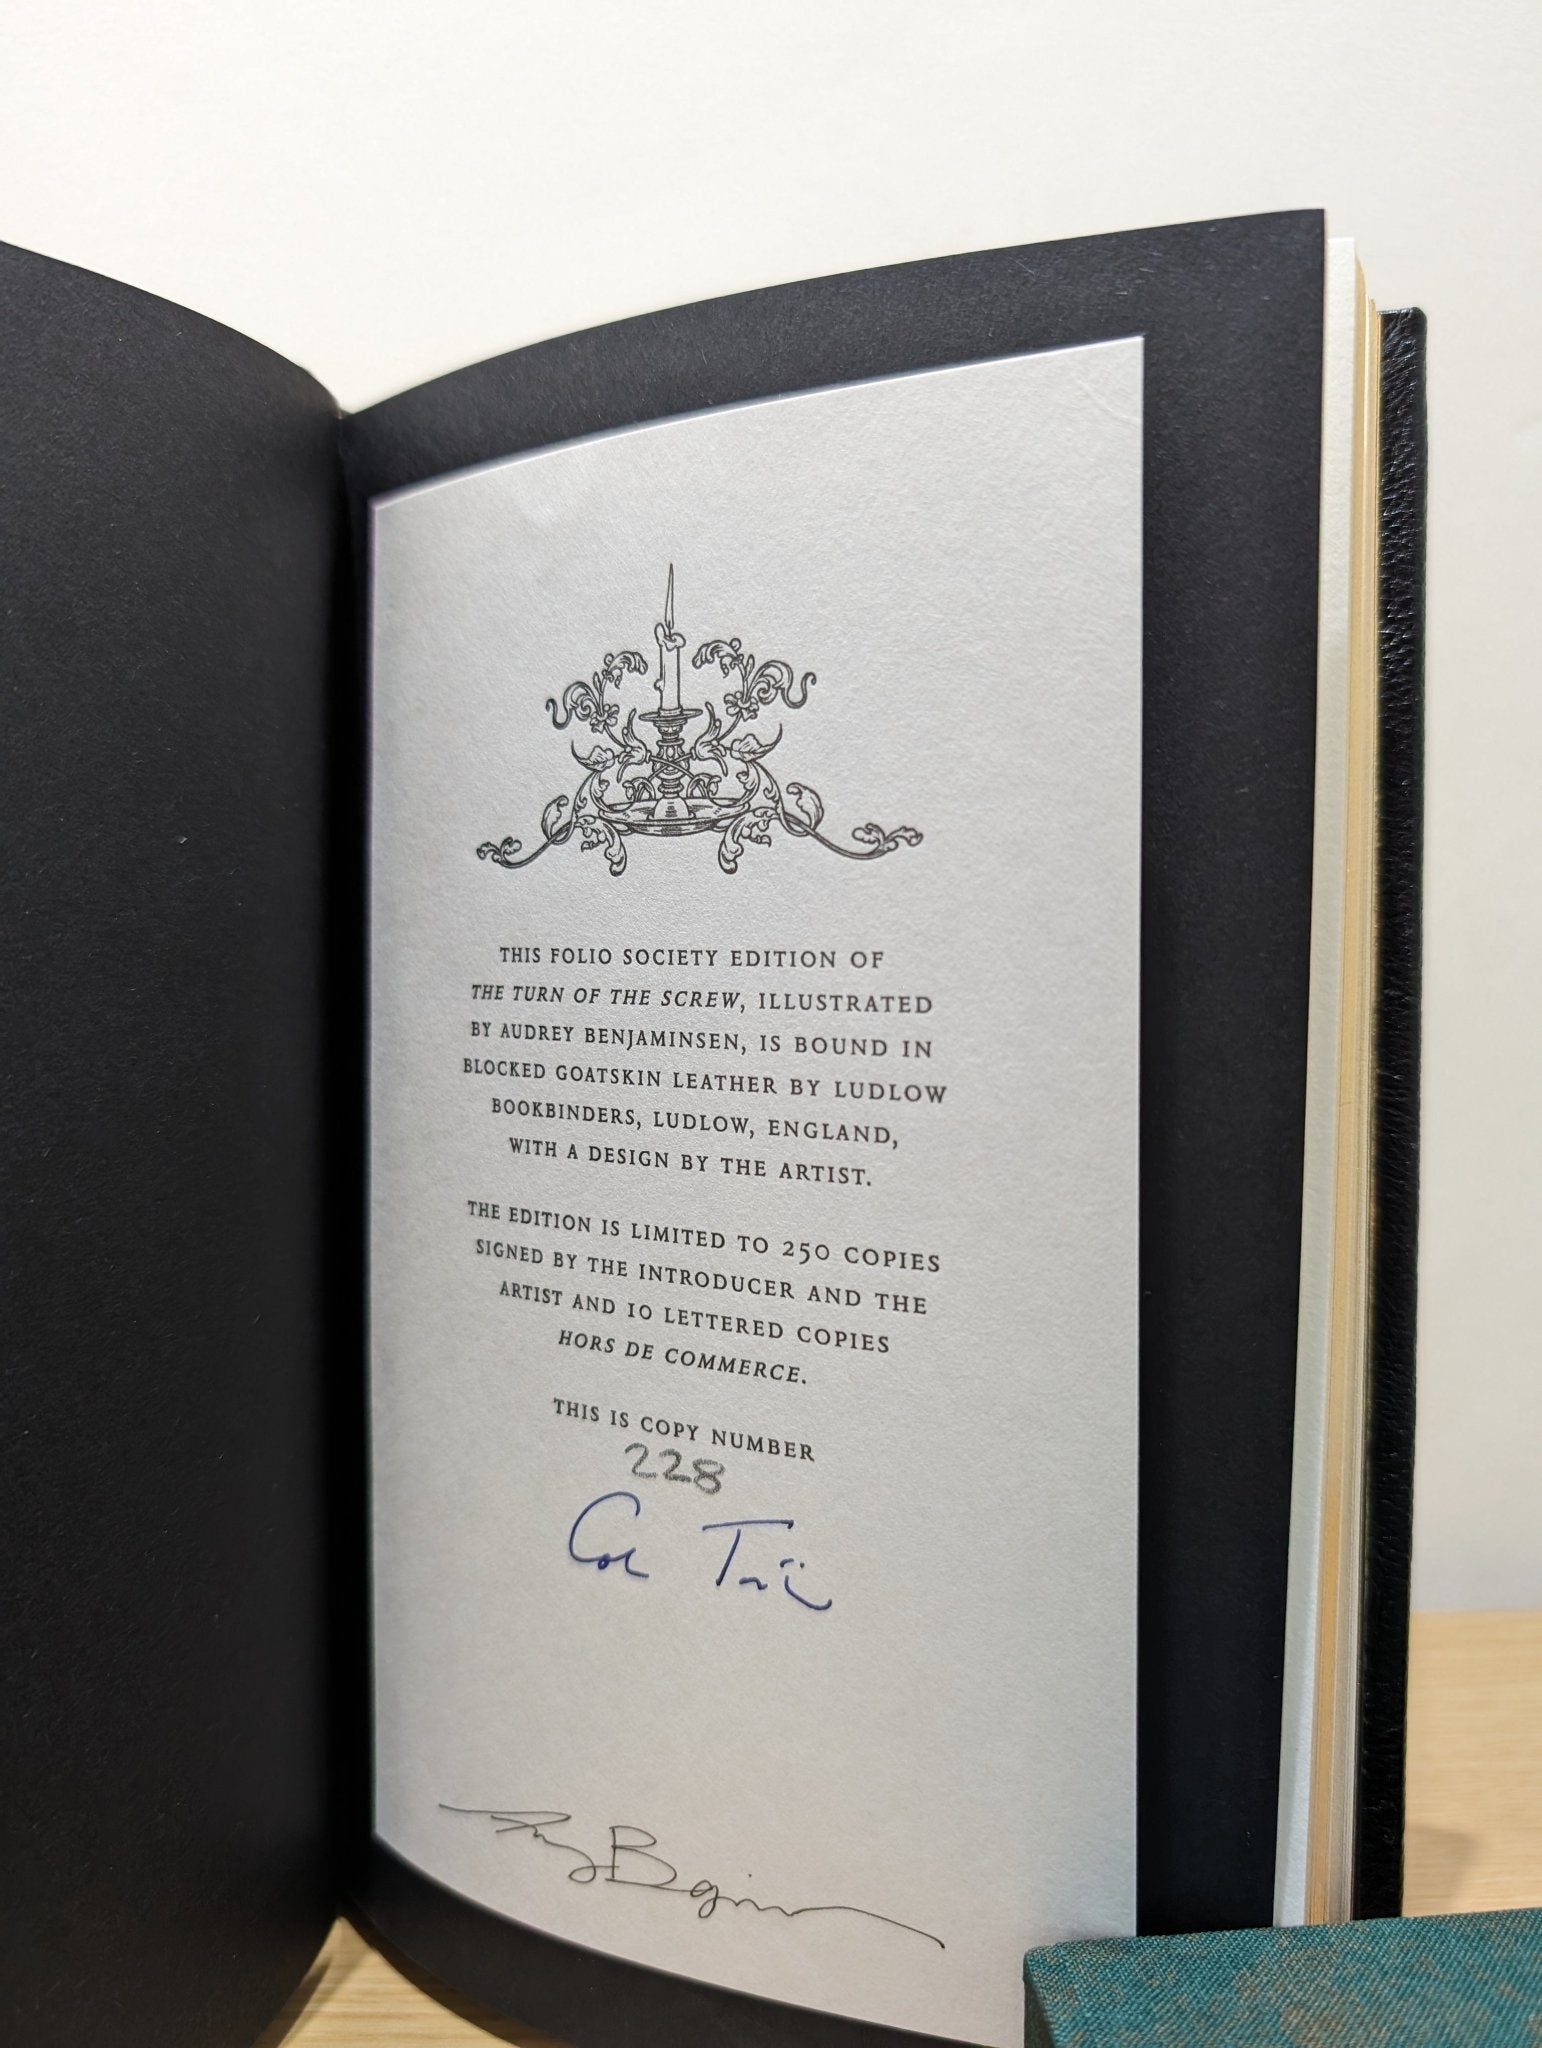 THIS FOLIO SOCIETY EDITION OF
THE TURN OF THE SCREW, ILLUSTRATED
BY AUDREY BENJAMINSEN, IS BOUND IN
BLOCKED GOATSKIN LEATHER BY LUDLOW
BOOKBINDERS, LUDLOW, ENGLAND,
WITH A DESIGN BY THE ARTIST.
THE EDITION IS LIMITED TO 250 COPIES
SIGNED BY THE INTRODUCER AND THE
ARTIST AND 10 LETTERED COPIES
HORS DE COMMERCE.
THIS IS COPY NUMBER
228